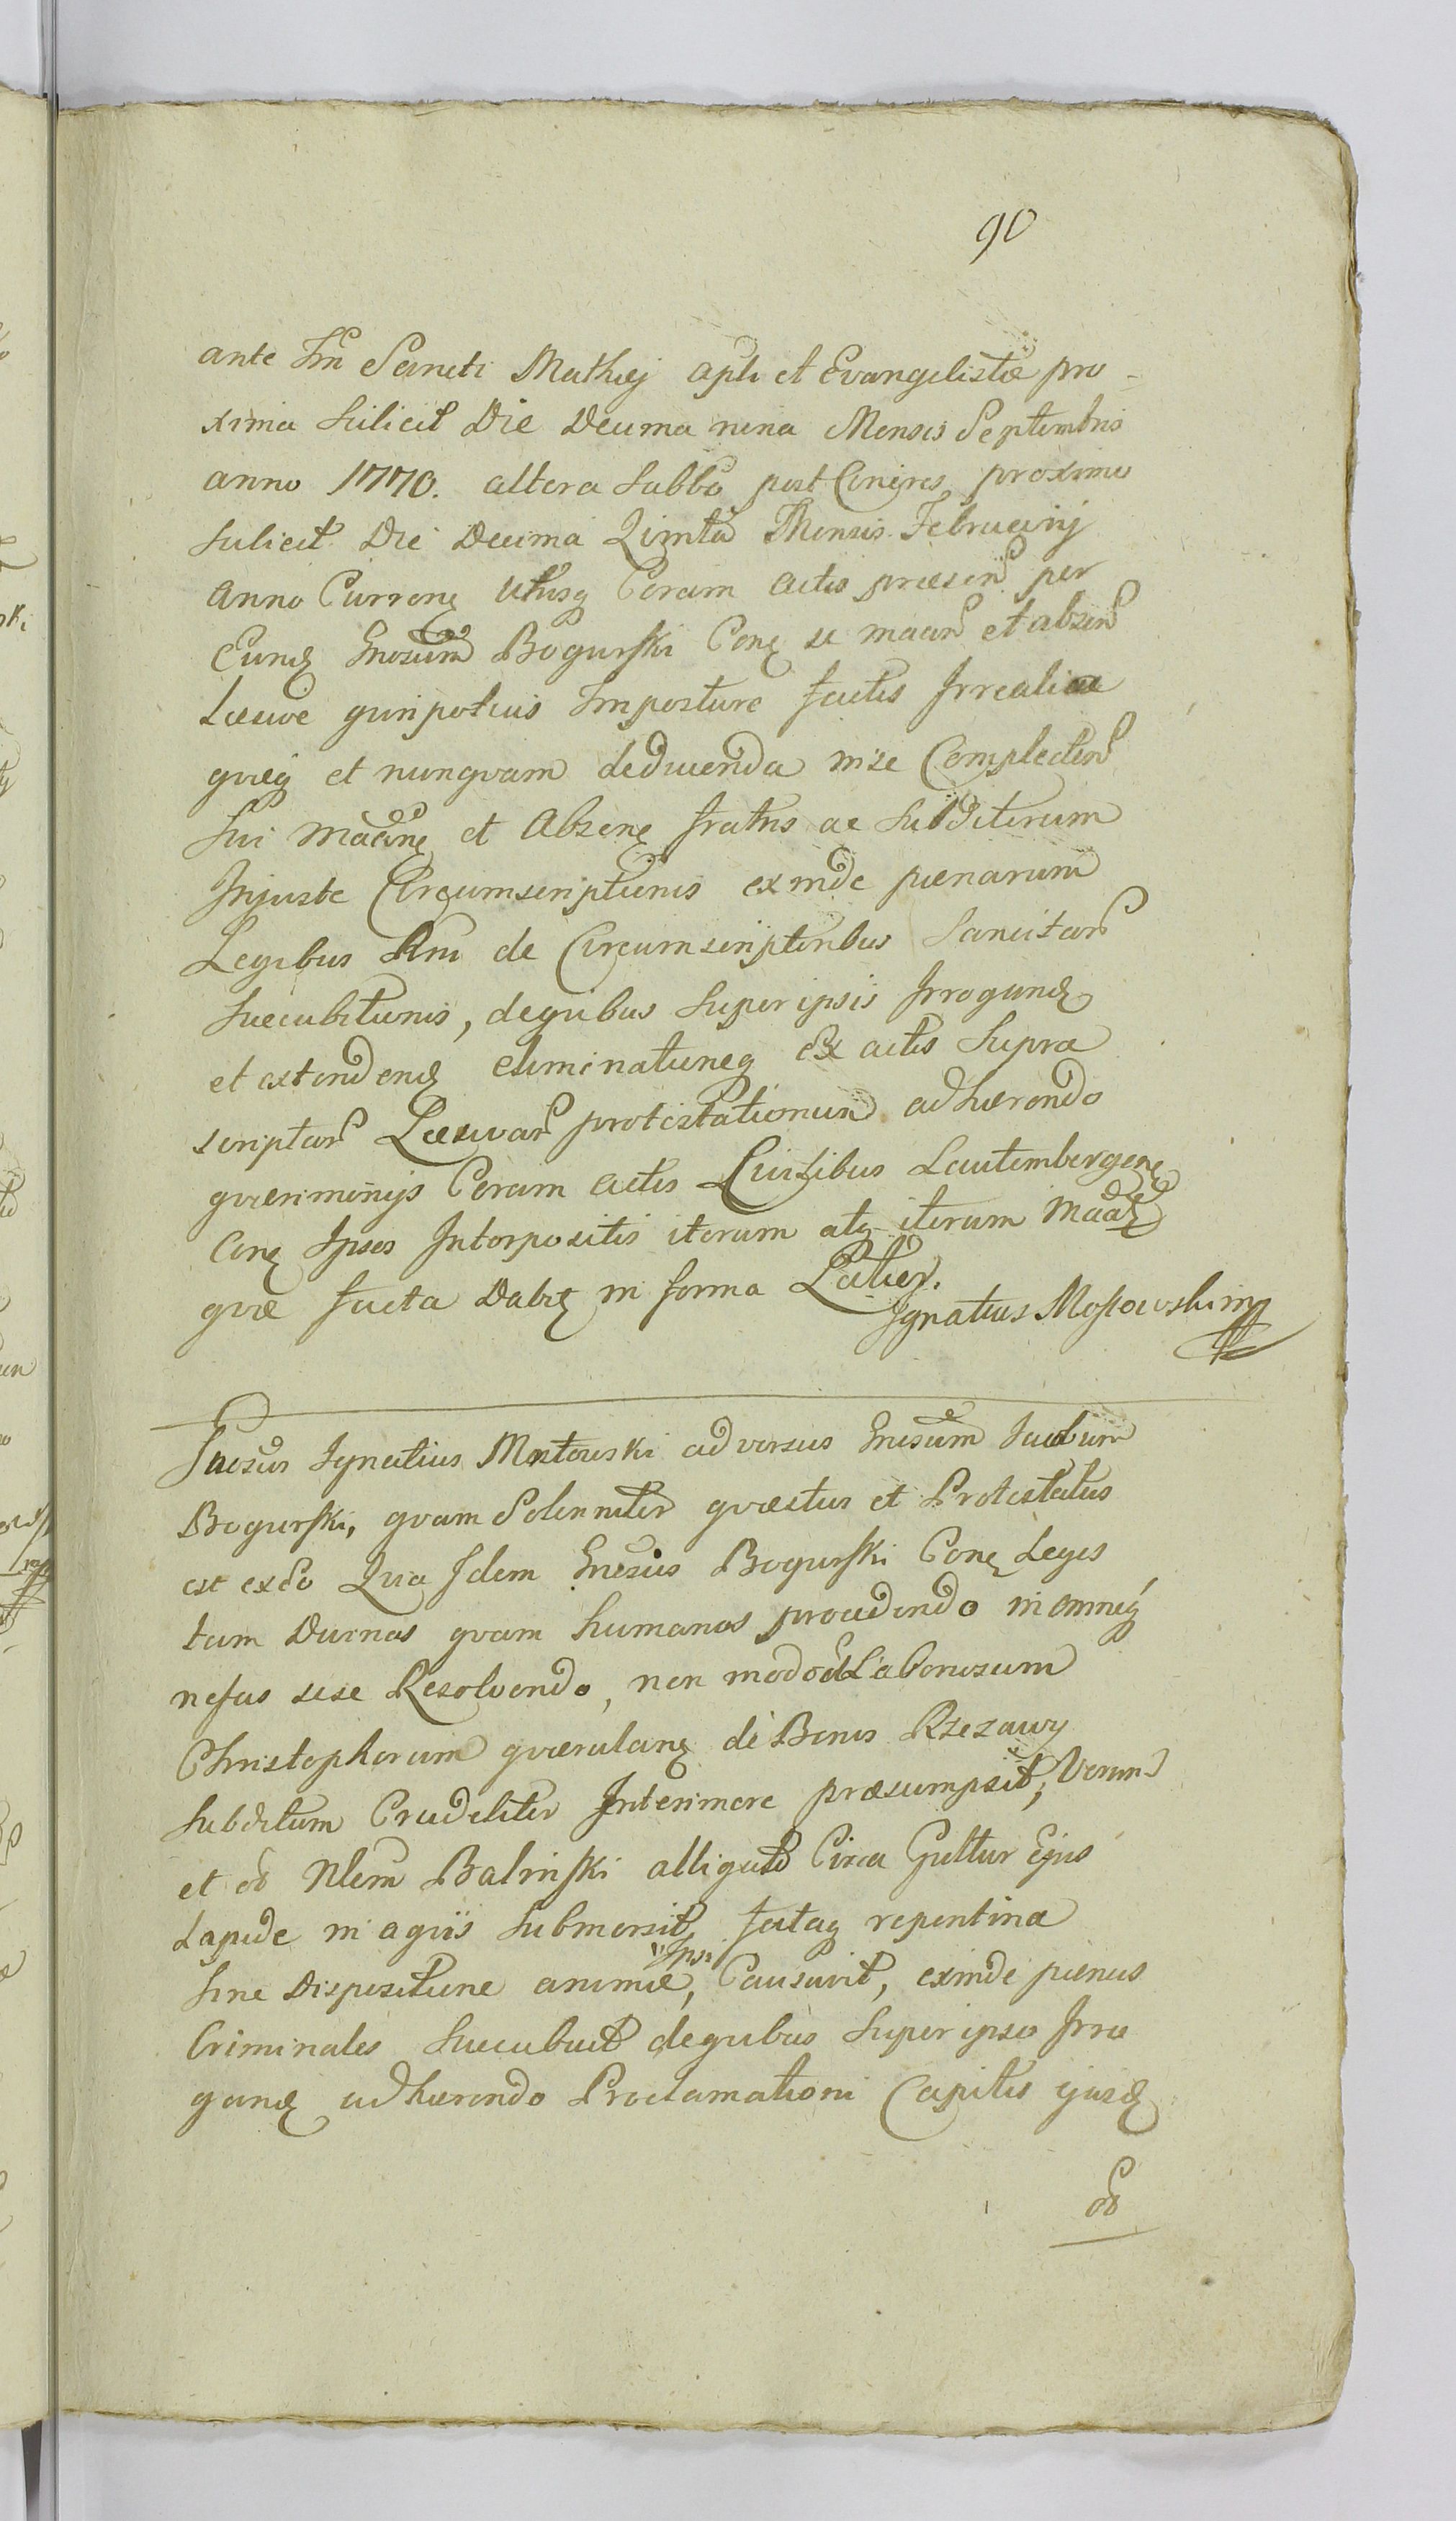 90
ante Fm Sancti Mathej apli et Evangelistæ pro-
xima scilicet Die Decima nona Mensis Septembris
anno 1770. altera Sabbo post Cineres proximo
scilicet Die Decima Qvinta Mensis Februarij
anno Curren utrisq Coram actis præsen per
eund Gnosum Bogurski Con se maan et absen
Læsivæ qvinpotius Imposturæ factis Irrealia
qvæq et nunqvam deducenda in se Complecten
sui maan et Absen fratris ac Subditorum
Injuste Circumscriptionis exinde pænarum
Legibus Rni de Circumscriptoribus Sancitar
succubitionis, de qvibus super ipsis Irrogand
et extendend eliminationeq ex actis supra
scriptar Læsivar protestationum adhærendo
qværimonijs Coram actis Civilibus Lautembergen
Con Ipsos Interpositis iterum atq iterum
qvæ facta Dabit in forma Latior.
Ignatius Mostowski mp
Gnosus Ignatius Mostowski adversus Gnosum Jacobum
Bogurski, qvam Solenniter qvæstus et Protestatus
est exeo Qvia Idem Gnosus Bogurski Con Leges
tam Divinas qvam humanas procedendo in omneq
nefas sese Resolvendo, non modo Laboriosum
Christophorum qværulan de Bonis Rzezawy
subditum Crudeliter Interimere præsumpsit, Verum
et Nlem Balinski alligato Circa Guttur Ejus
Lapide in aqvis submersit, fataq repentina
sine Dispositione animæ, Ipsi Causavit, exinde pænas
Criminales succubuit de qvibus super ipso Irro
gand adhærendo Proclamationi Capitis ejusd
ob